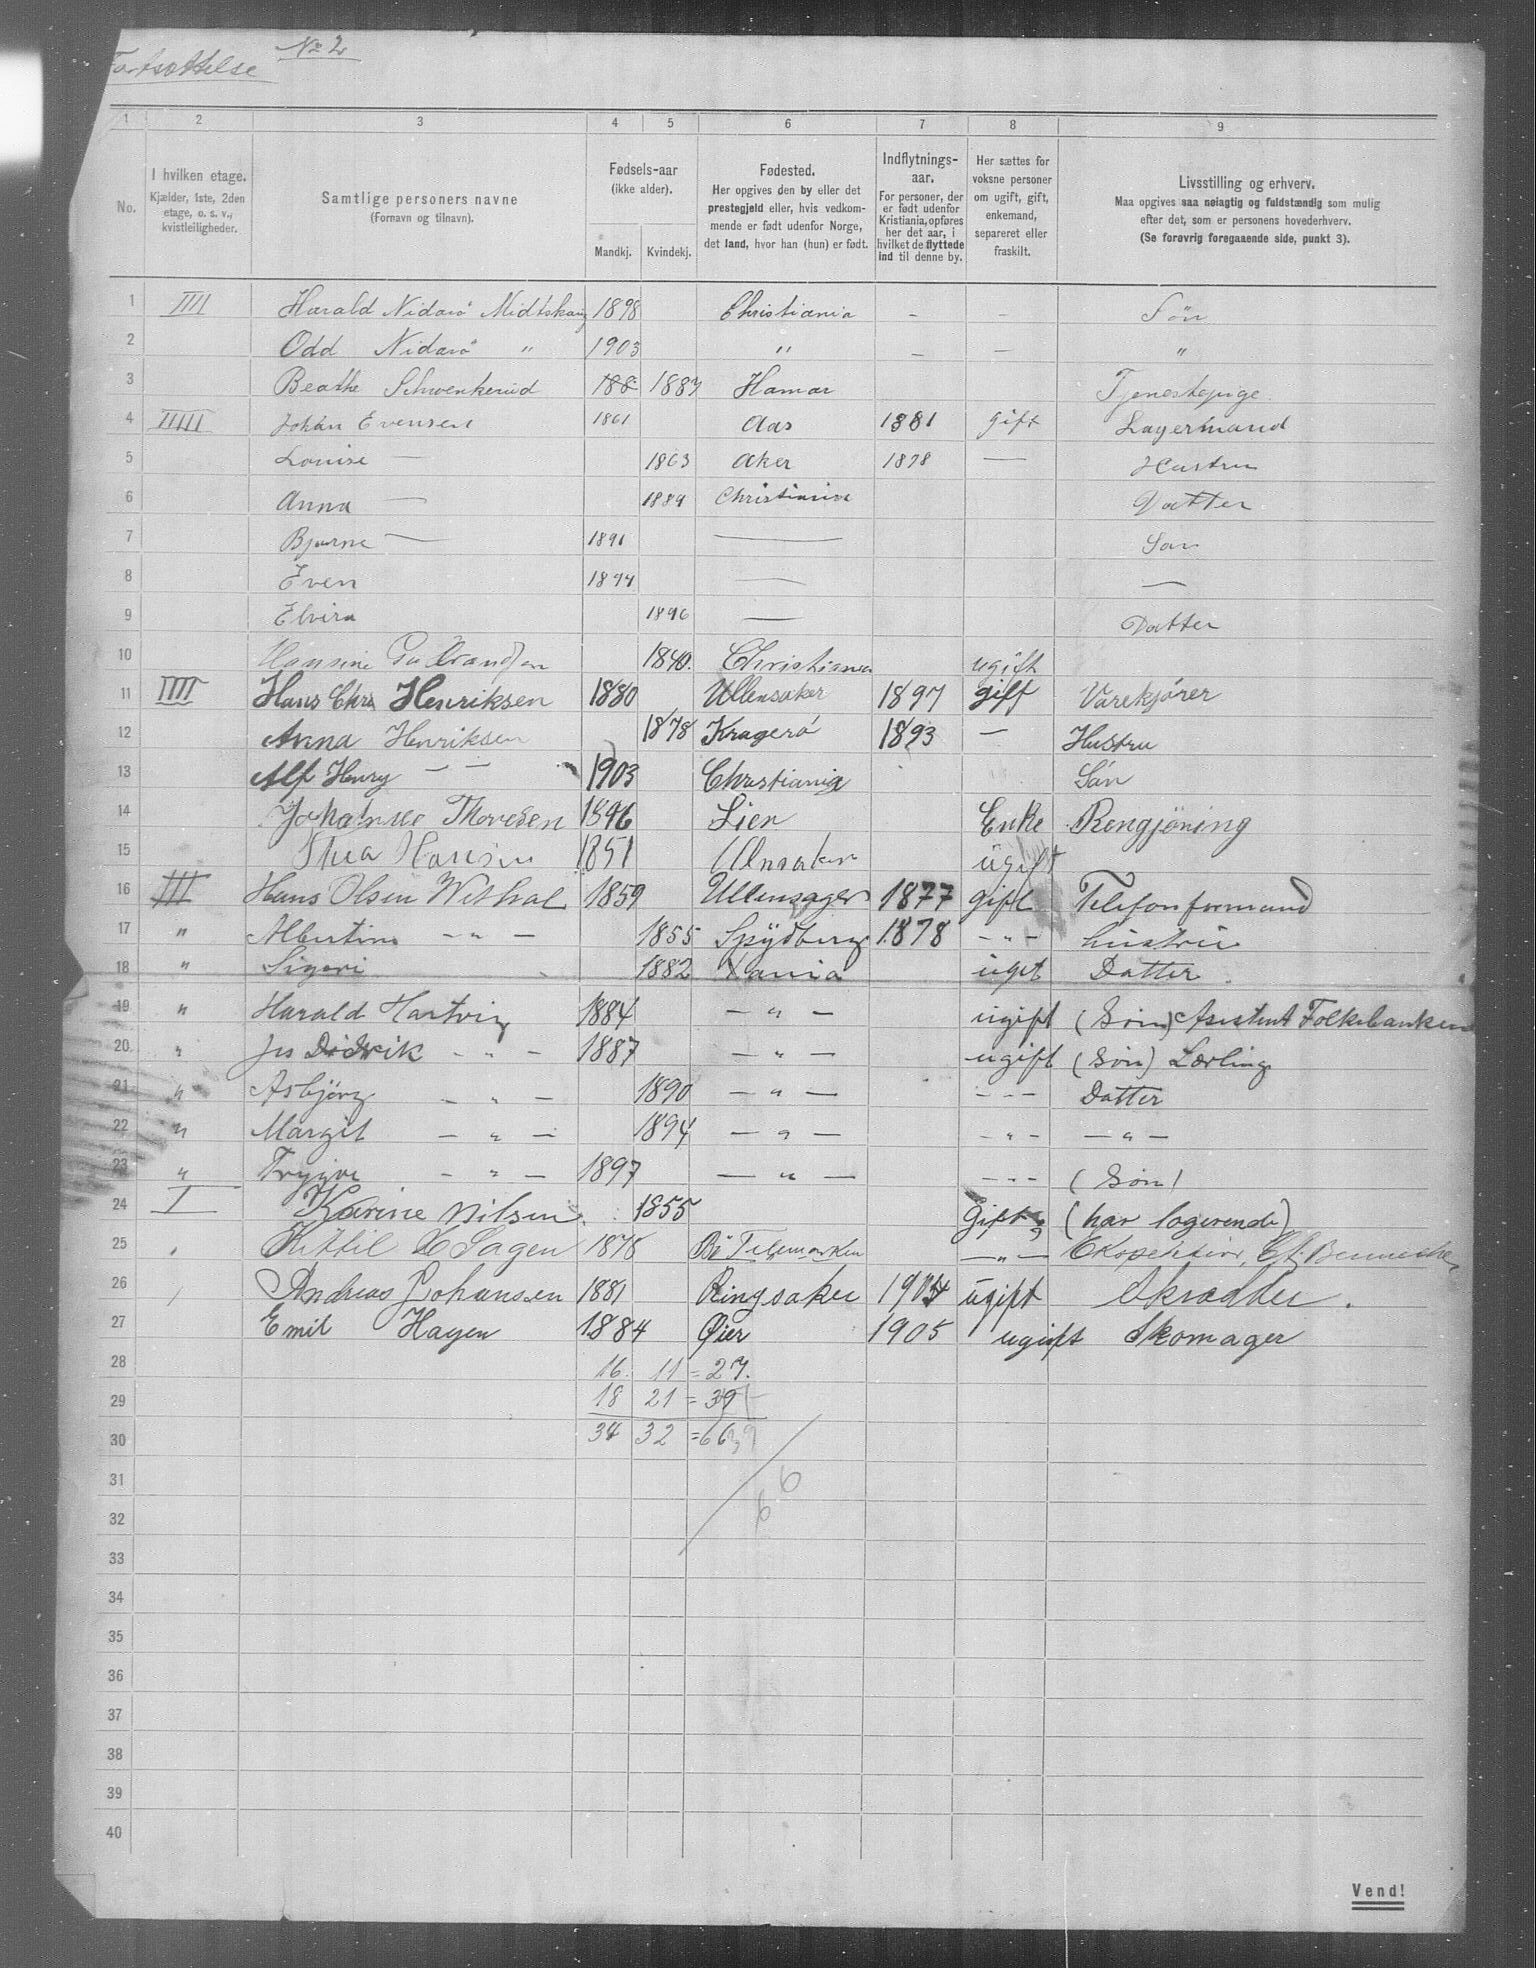 Fortsættelse No 2
1 2 3 4 5 6 7 8 9
No.
I hvilken etage.
Kjælder, 1ste, 2den
etage, o. s. v.,
kvistleiligheder.
Samtlige personers navne
(Fornavn og tilnavn).
Fødsels-aar
(ikke alder).
Mandkj. Kvindekj.
Fødested.
Her opgives den by eller det
prestegjeld eller, hvis vedkom-
mende er født udenfor Norge,
det land, hvor han (hun) er født.
Indflytnings-
aar.
For personer, der
er født udenfor
Kristiania, opføres
her det aar, i
hvilket de flyttede
ind til denne by.
Her sættes for
voksne personer
om ugift, gift,
enkemand,
separeret eller
fraskilt.
Livsstilling og erhverv.
Maa opgives saa nøiagtig og fuldstændig som mulig
efter det, som er personens hovederhverv.
(Se forøvrig foregaaende side, punkt 3).
1 IIII Harald Nidarö Midtskaug 1898 Christiania – – Sön
2 Odd Nidarö " 1903 " – – "
3 Beathe Schwenkerud 188 1887 Hamar Tjenestepige.
4 IIIII Johan Evensen 1861 Aas 1881 gift Lagermand
5 Louise — 1863 Aker 1878 — Hustru
6 Anna — 1889 Christiania Datter
7 Bjarne — 1891 — Søn
8 Even 1894 — —
9 Elvira 1896 — Datter
10 Hansine Gulbrandsen 1840. Christiania ugift
11 IIII Hans Chr. Henriksen 1880 Ullensaker 1897 gift Varekjører
12 Anna Henriksen 1878 Kragerö 1893 — Hustru
13 Alf Henry — — 1903 Christiania Sön
14 Thoresen 1846 Lier Enke Rengjöring
15 Hansen 1851 Ullensaker ugift
16 III Hans Olsen Wethal 1859 Ullensager 1877 gift Telefonformand
17 " Albertine – " – 1855 Spydberg 1878 – " – hustru
18 " Sigvri 1882 Xania ugift Datter.
19 " Harald Hartvig 1884 – " – ugift (Søn) Asistent Folkebanken
20 " Jes Didrik – " – 1887 – " – ugift (Søn) Lærling
21 " Asbjörg – " – 1890 – " – – – – Datter
22 " Margit – " – 1894 – " – – " – – " –
23 " Trygve – " – 1897 – " – – – – (Søn)
24 I Karine Nilsen. 1855 Gift (har logerende)
25 Kittil K Sagen 1878 Bö Telemarken – " –
26 Andreas Johansen 1881 Ringsaker 1904 ugift Skrædder.
27 Emil Hagen 1884 Øier 1905 ugift Skomager
28 16. 11 = 27.
29 18 21 = 39
30 34 32 = 66
31
32 66
33
34
35
36
37
38
39
40
Vend!